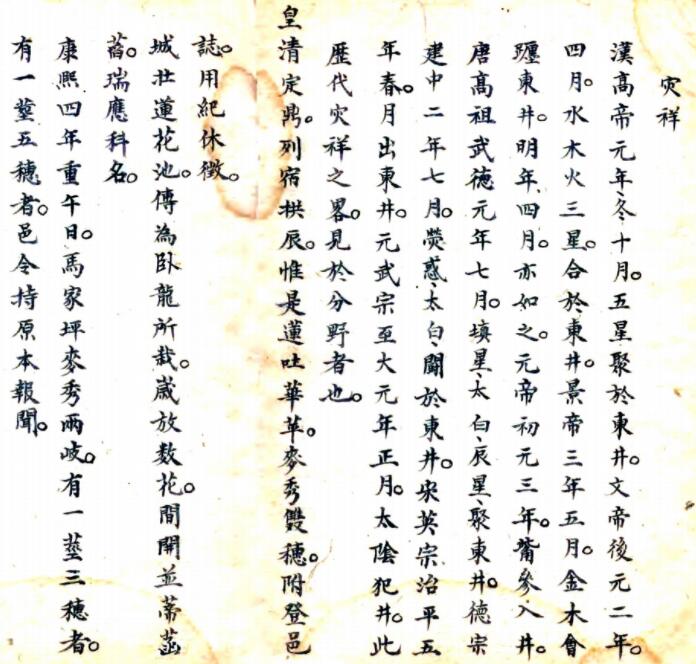 灾祥
漢高帝元年冬十月。五星聚於東井。文帝後元二年。
四月。水木火三星。合於東井。景帝三年五月。金木會
躔東井。明年四月。亦如之。元帝初元三年。觜參入井。
唐高祖武德元年七月。填星、太白、辰星、聚東井。德宗
建中二年七月。熒惑、太白、鬪於東井。宋英宗治平五
年春。月出東井。元武宗至大元年正月。太陰犯井。此
歷代灾祥之畧。見於分野者也。
皇清定鼎。列宿拱辰。惟是蓮吐華萃。麥秀雙穗。附登邑
誌。用紀休徵。
城壯蓮花池。傳為卧龍所栽。歲放数花。間開並蒂菡
萏。瑞應科名。
康熙四年重午日。馬家坪麥秀兩歧。有一莖三穗者。
有一莖五穗者。邑令持原本報聞。